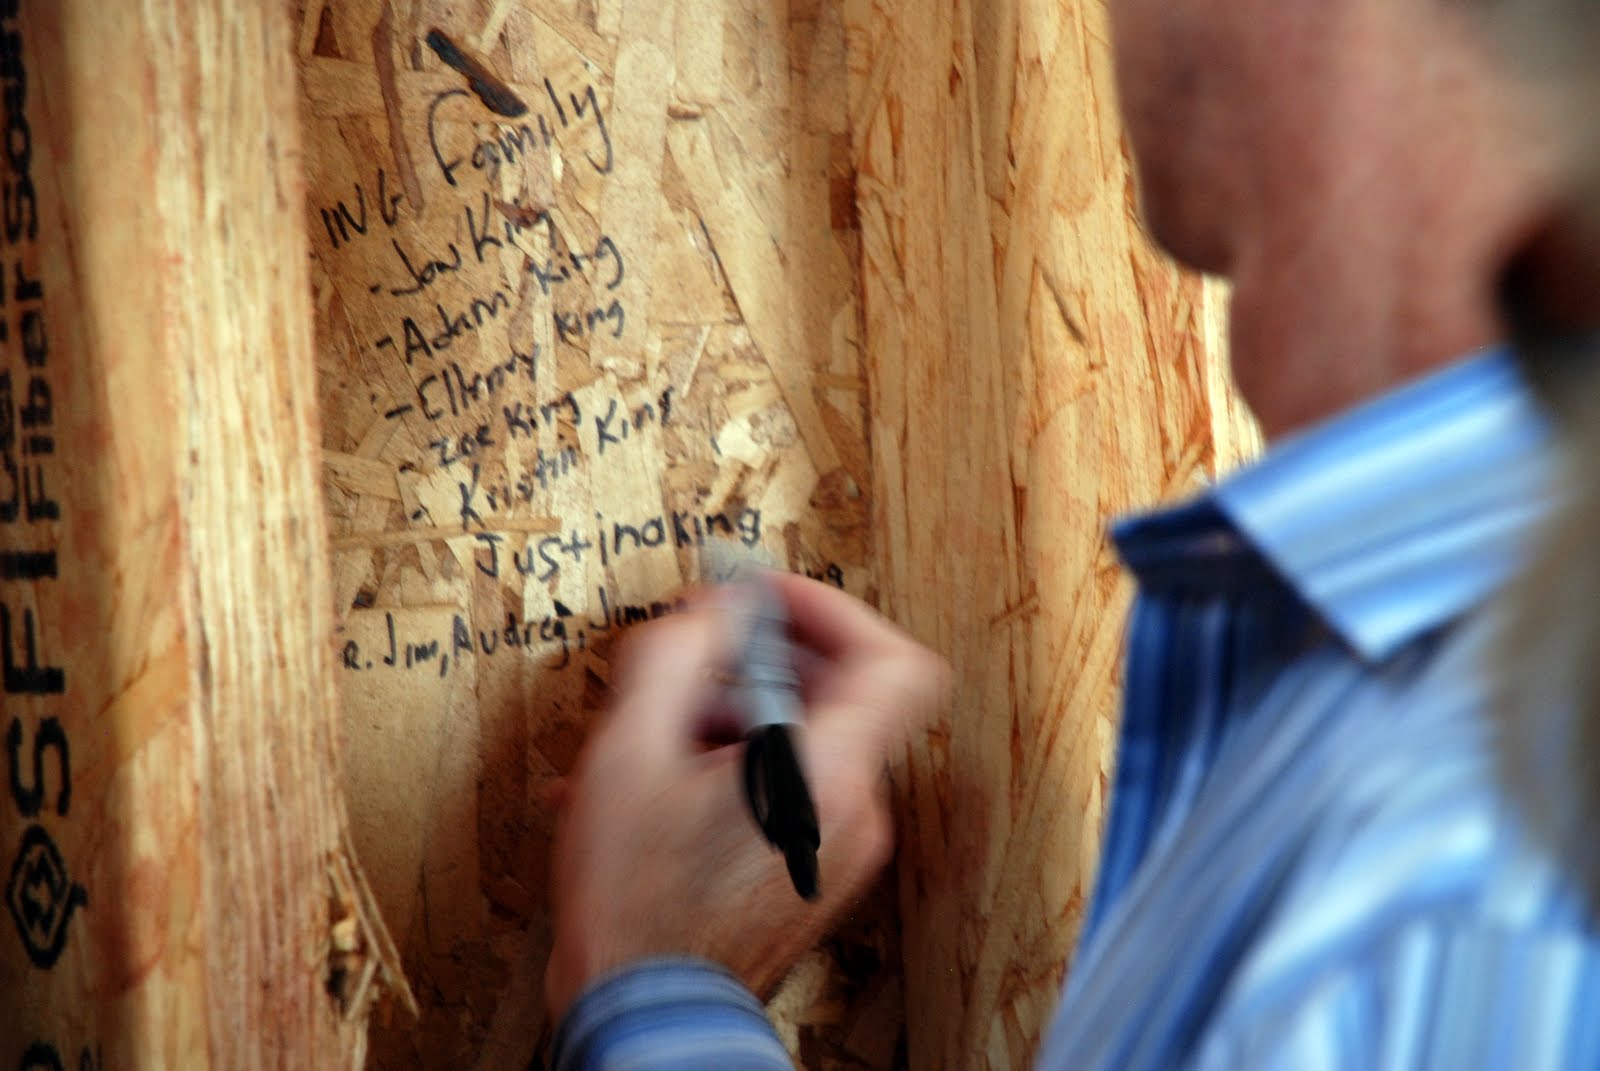 Family
ING
- Jon King
- Adam King
- Ellery King
- Zoe King
- Kristin King
Justina King
R. Jim, Audrey,
SFI Fiber Sour